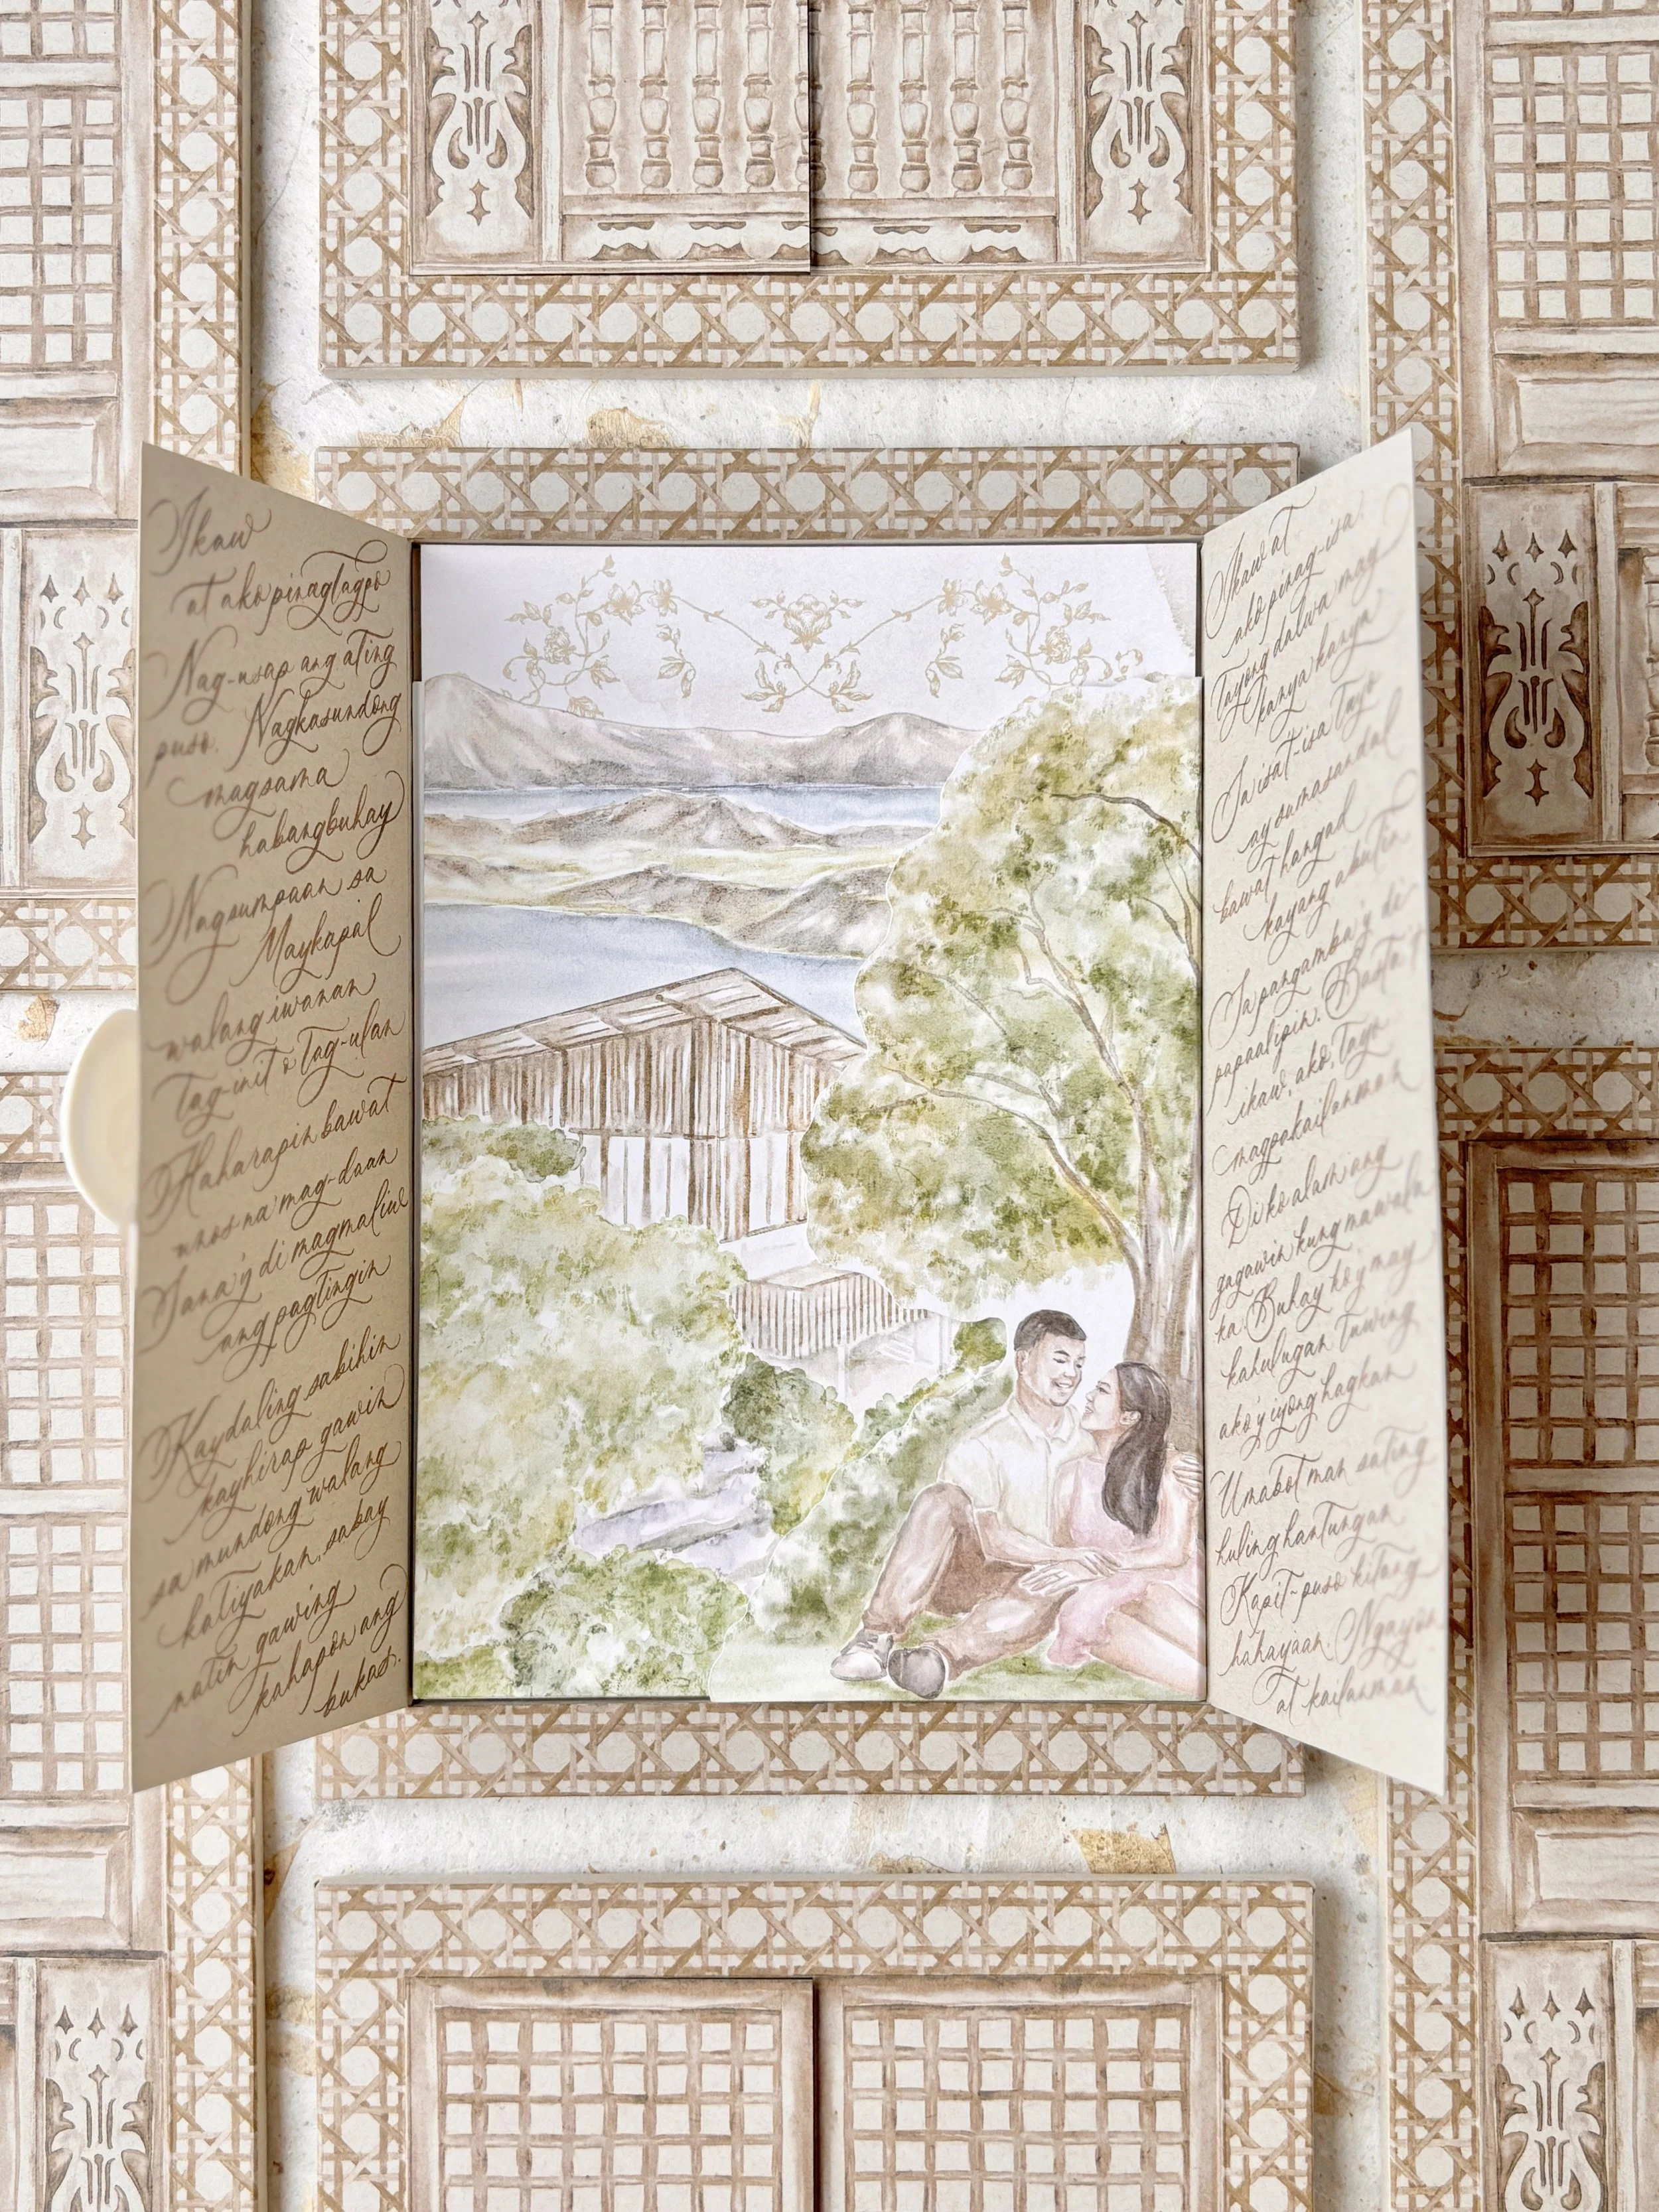 Ikaw
at ako pinagtagpo
Nag-usap ang ating
puso. Nagkasundong
magsama
habangbuhay
Nagsumpaan sa
Maykapal
walang iwanan
Tag-init o Tag-ulan
Haharapin bawat
unos na mag-daan
Sana'y di magmaliw
ang pagtingin
Kaydaling sabihin
kayhirap gawin
sa mundong walang
katiyakan, sabay
natin gawing
kahapon ang
bukas.
Ikaw at
ako pinag-isa
Tayong dalwa may
kanya kanya
Sa isat-isa tayo
ay sumasandal
bawat hangad
kayang abutin
Sa pangamba'y di
papaalipin. Basta't
ikaw, ako, Tayo
magpakailanman
Di ko alam ang
gagawin kung mawala
ka Buhay ko'y may
kahulugan tuwing
ako'y iyong hagkan
Umabot man sating
huling hantungan
Kapit-puso kitang
hahayaan. Ngayon
at kailanman.